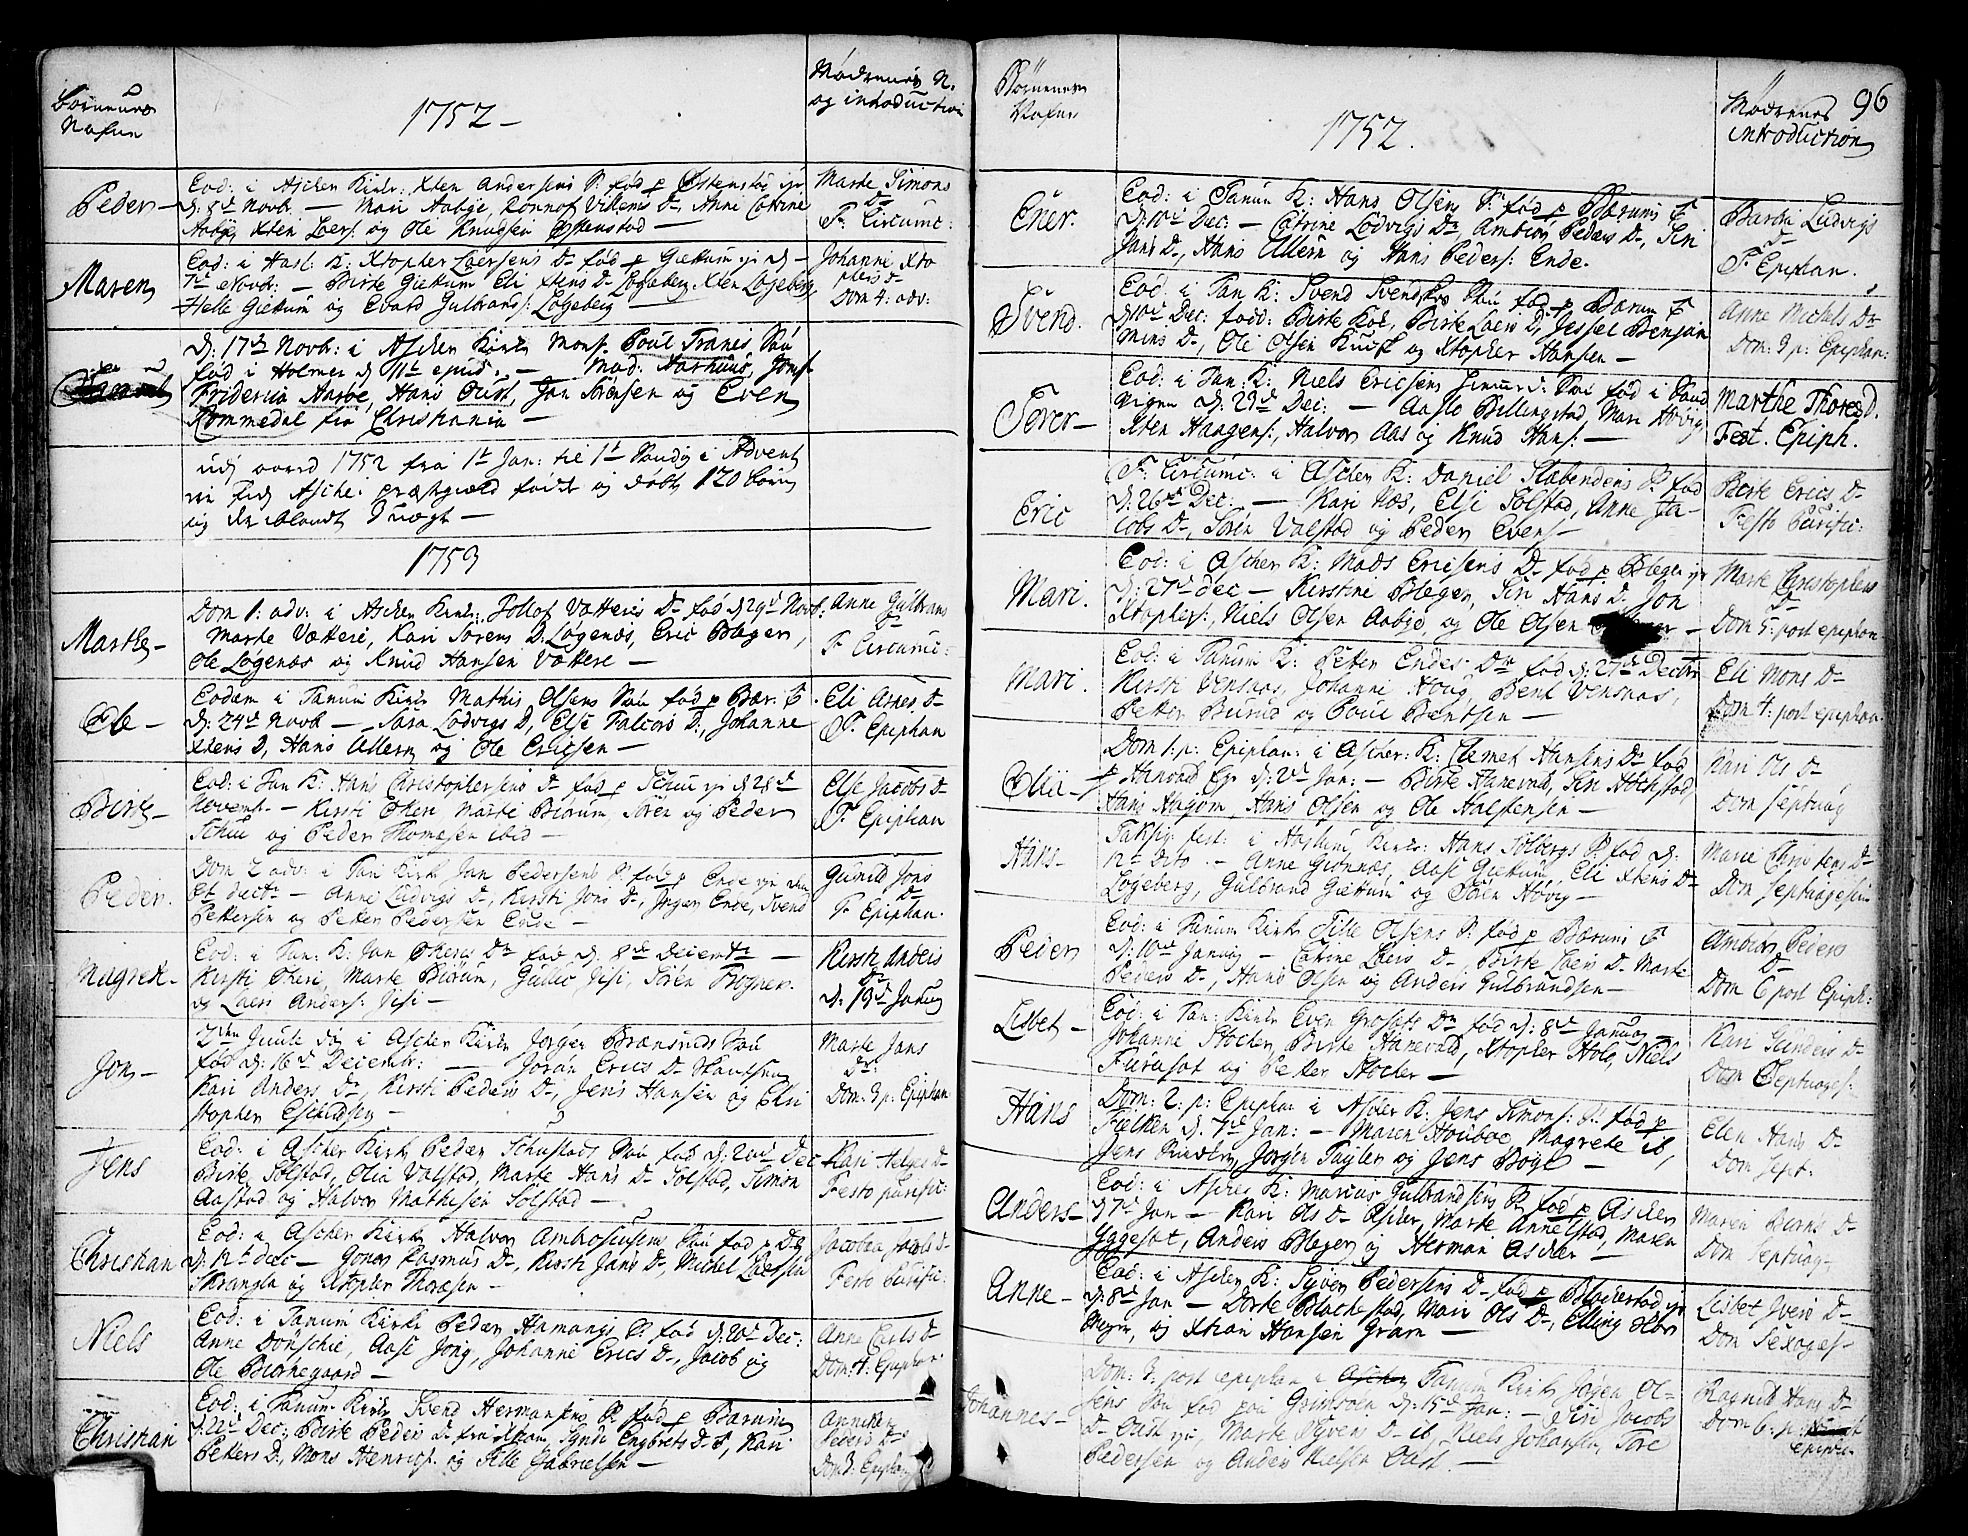 Børnenes
Nafne
1752
Mødrenes N.
og introduction
Peder
Eod: i Ascher Kirk: Xten Andersens S: fød p Østenstad
d: 5d Novb. — Mari Aabye, Ronnof Villens D, Anne Catrine
Aabye, Xten Laers: og Ole Knudsen Østenstad —
Marte Simons
D
F. Circumc:
Maren
Eod: i Hasl: K: Xtopher Laersens D fød p Giettum d
7d Novb: — Birte Giettum Eli Xtens D Løgeberg, Xten Løgeberg
Helle Giettum og Evard Gulbrands: Løgeberg —
Johanne Xto
phers D
Dom 4: adv:
d: 17d Novb: i Ascher Kirk Mons. Poul Tranes Søn
fød i Holmen d 11t — Mad: Aarhuus, Jomf
Friderica Aasbe, Hans Oust, Jan Sørensen og Even
Rommedal fra Christiania —
udj aaret 1752 fra 1t Jan: til 1t Søndag i Advent
ere udj Asche: præstegield fødde og døbte 120 børn
og der iblandt 9 uægte —
1753
Marthe
Dom 1: adv: i Ascher Kirk: Tollof Vætteres D fød d 29d Novb:
Marte Vættere, Kari Sørens D: Løgenæs, Eric Bleger,
Ole Løgenæs og Knud Hansen Vettere —
Anne Gulbrans
D
F Circumc:
Ole
Eodem i Tanum Kirk Mathis Olsens Søn fød p Bær: V
d: 24d Novb — Sara Lodvigs D, Else Falcors D:, Johanne
Xtens D, Hans Ullern og Ole Ericsen —
Eli Arnes D
F. Epiphan
Birte
Eod: i Tan K: Hans Christophersens D fød p Schui d 28d
Novemb. — Kirsti Øheri Marte Biørum, Søren og Peder
Schui og Peder Thomesen ibid —
Else Jacobs D
F. Epiphan
Peder
Dom 2 adv: i Tan Kirk Jan Pedersens S: fød p Ende
6t decbr — Anne Ludvigs D, Kirsti Jons D, Jørgen Ende, Svend
Pettersen og Petter Pedersen Ende —
Gunild Jons
D
F. Epiphan.
Magrete
Eod: i Tan: K: Jan Øheris D fød d. 8d Decembr —
Kirsti Øheri, Marte Biørum, Gullic Jesi, Søren Frogner
og Laers Anders: Jesi —
Kirsti Anders
D
d: 19d Janua
Jon
2den Juule dag i Ascher Kirk Jørgen Brænsruds Søn
fød d: 16d Decembr: — Joran Erics D
Kari Anders D, Kirsti Peders D, Jens Hansen og Chri
stopher Eskildsen —
Marte Jans
D
Dom. 3 p: Epiphan
Jens
Eod: i Ascher Kirk Peder Schustads Søn fød d: 20d Dec
Birte Solstad, Olia Valstad, Marte Hans D Solstad, Simon
Aastad og Halvor Mathiesen Solstad —
Kari Helges D
Festo purific:
Christian
Eod: i Ascher Kirk Halvor Ambrosiusens Søn fød p
d: 12t dec — Gonor Rasmus D, Kirsti Jans D, Michel Laersen
og Xtopher Thoresen —
Jacobea Joels D
Festo Purific:
Niels
Eod: i Tanum Kirk Peder Hamangs S: fød d: 20d Dec:
Anne Dønschie, Aase Jong, Johanne Erics D, Jacob og
Ole Biørnegaard —
Anne Carls D
Dom: 4: Epiphan.
Christian
Eod: i Tanum Kirk Svend Hermansens S: fød p Bærum
d: 22d Dec: Birte Peders D Engbrets D, Kari
Petters D, Mons Henrics: og Tille Gabrielsen —
Anniken
Peders D
Dom 3: Epiphan
Børnenes
Nafne
1752.
Mødrenes
introduction
96
Ener.
Eod: i Tanum K: Hans Olsens S: fød p Bærums V
d: 10d Dec: — Catrine Lodvigs D, Ambior Peders D, Siri
Jans D, Hans Ullern og Hans Peders: Ende.
Barbra Ludvigs
D
F. Epiphan.
Svend.
Eod: i Tan K: Svend Svendsens Søn fød p Bærum V
d 10d Dec: fadd: Birte Kok, Birte Laers D, Jessel Benjan
mins D, Ole Olsen Kuisk og Xtopher Hansen —
Anne Michels D
Dom: 3 p: Epiphan:
Torer
Eod: i Tan: K: Niels Ericsens Søn fød i Sand
vigen d: 23d Dec: — Aaslo Billingstad, Mari Høvig
Xten Haagens:, Halvor Aas og Knud Hans: —
Marthe Thoresd.
Fest. Epiph.
Eric
F. Circumc: i Ascher K: Daniel Slabendens S: fød
d: 26d Dec: — Kari Næs, Else Solstad, Anne Ja-
cobs D, Søren Valstad og Peder Evens —
Birte Erics D
Festo Purific:
Mari.
Eod: i Ascher K: Mads Ericsens D fød p Bleger
d: 27d dec — Kirstine Bleger, Siri Hans D. Jon
Xtophers:, Niels Olsen Aabye, og Ole Olsen
Marte Christophers
D
Dom 5: post epiphan
Mari.
Eod: i Tanum K: Petter Endes D fød d: 27de Decbr
Kirsti Vensnas, Johanne Houg, Bent Vensnas,
Petter Burud og Poul Bentsen —
Eli Mons D
Dom 4: post epiphan
Olia
Dom 1: p: Epiphan: i Ascher: K: Clemet Hansens D fød
p Hanevald d: 2d Jan: — Birte Hanevald, Siri Hochstad,
Hans Hagom, Hans Olsen og Ole Halstensen —
Kari Ols D
Dom septuag
Hans
Taksig: fest: i Haslum Kirk: Hans Solbergs S: fød d:
12t dito. — Anne Grønnæs, Aase Giettum, Eli Xtens D
Løgeberg, Gulbrand Giettum og Søren Høvig —
Marie Christens D
Dom septuagesim
Peder
Eod: i Tanum Kirk Tille Olsens S: fød p Bærums V
d: 10d Januar — Catrine Laers D Birte Laers D Marte
Peders D, Hans Olsen og Anders Gulbrandsen —
Ambior Peders
D
Dom 6 post Epiph:
Lisbet
Eod: i Tan: Kirk Even Grosets D fød d: 8d Januar
Johanne Stocher, Birte Hanevald, Xtopher Hole, Niels
Furuset og Petter Stocher —
Kari Gunders D
Dom Septuages:
Hans
Dom: 2. p: Epiphan i Ascher K: Jens Simons: S: fød p
Falken d. 7d Jan: — Maren Houboe, Magrete ib,
Jens Rinden, Jørgen Tayler og Jens Bøgl —
Elen Hans D
Dom sept:
Anders
Eod: i Ascher K: Marcus Gulbrandsens S: fød p Ascher
d 7d Jan — Kari Ols D Ascher, Marte Annestad, Maren
Yggeset, Anders Bleger og Herman Ascher —
Maren Biørns D
Dom Septuag
Anne
Eod: i Ascher K: Syver Pedersens D fød p Blachestad
d: 8d Jan — Dorte Blachestad, Mari Ols D, Elling
og Xtian Hansen Gram —
Lisbet Jvers D
Dom Sexages
Johannes
Dom: 3. post epiphan i Tanum Kirk Jørgen Ol-
sens Søn fød paa Grimsøen d: 15d Jan: — Siri Jacobs
D Oust, Marte Syvers D ib, Niels Johansen, Tore
Pedersen og Anders Nielsen Oust —
Ragnild Hans D
Dom 6: p:
epiph.